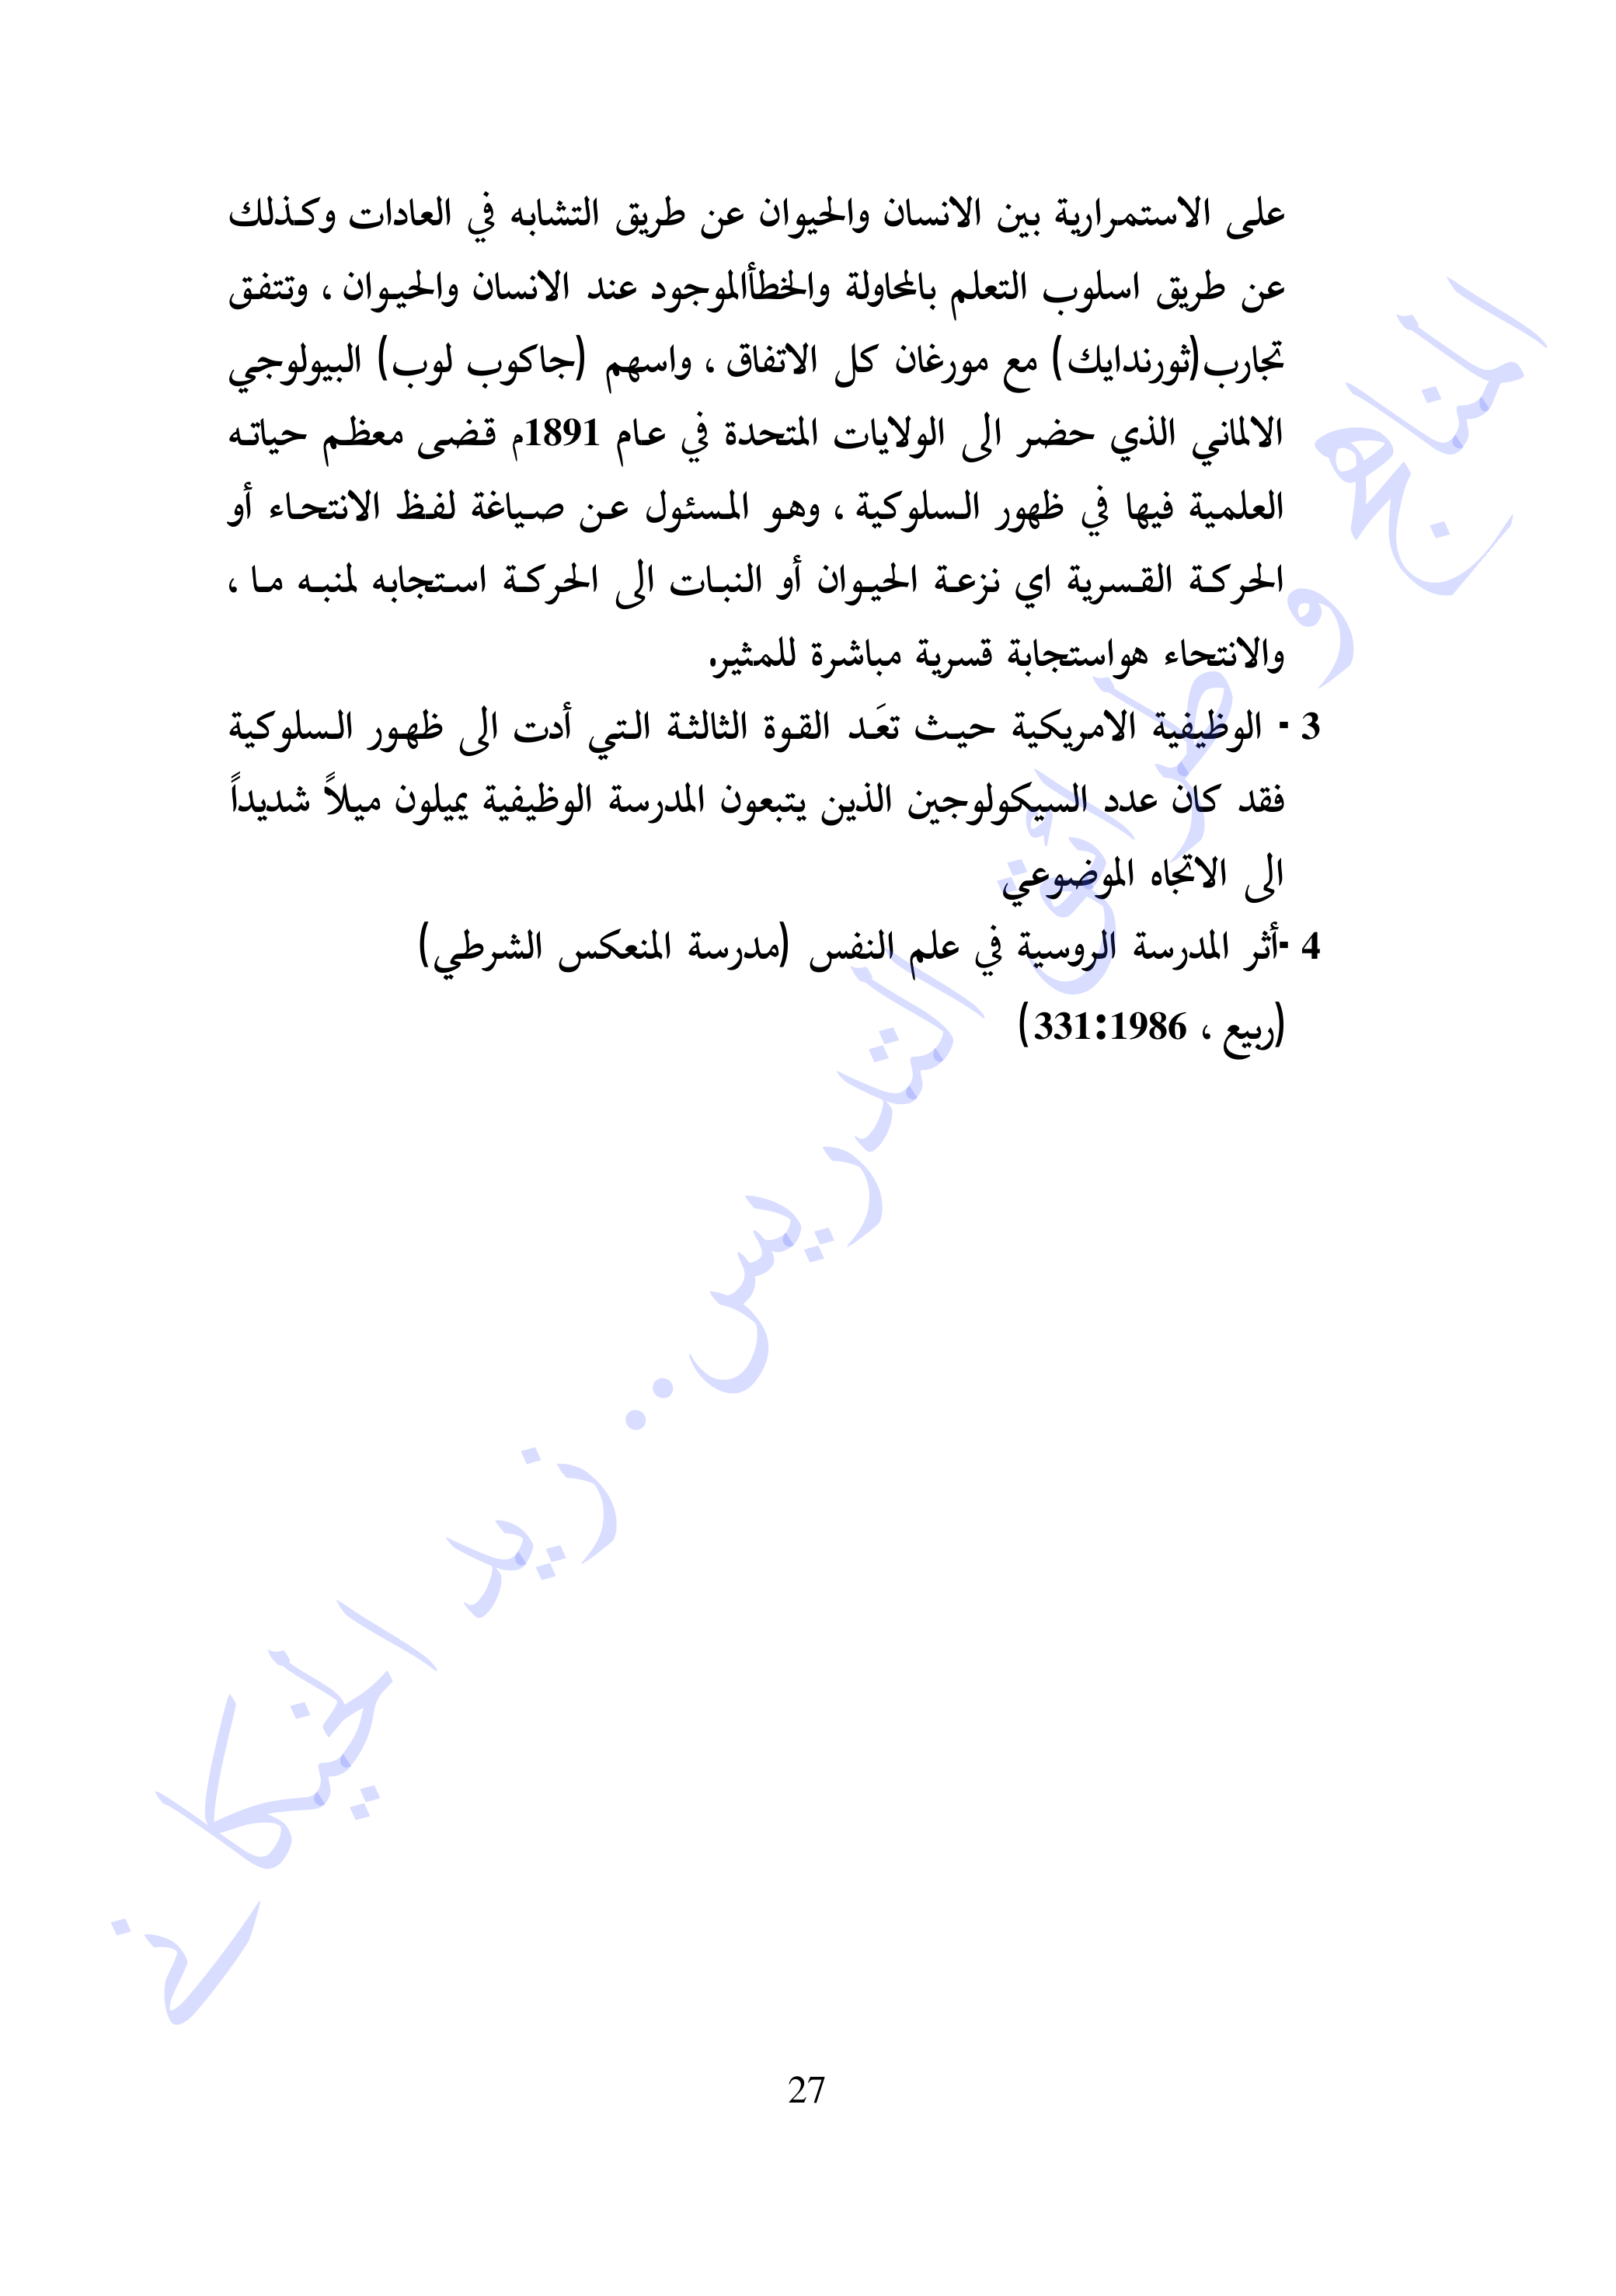 على الاستمرارية بين الانسان والحيوان عن طريق التشابه في العادات وكذلك
عن طريق اسلوب التعلم بالمحاولة والخطأالموجود عند الانسان والحيوان ، وتتفق
تجارب(ثورندايك) مع مورغان كل الاتفاق ، واسهم (جاكوب لوب) البيولوجي
الالماني الذي حضر الى الولايات المتحدة في عام 1891م قضى معظم حياته
العلمية فيها في ظهور السلوكية ، وهو المسئول عن صياغة لفظ الانتحاء أو
الحركة القسرية اي نزعة الحيوان أو النبات الى الحركة استجابه لمنبه ما ،
والانتحاء هواستجابة قسرية مباشرة للمثير.
3 - الوظيفية الامريكية حيث تعَد القوة الثالثة التي أدت الى ظهور السلوكية
فقد كان عدد السيكولوجين الذين يتبعون المدرسة الوظيفية يميلون ميلاً شديداً
الى الاتجاه الموضوعي
4 -أثر المدرسة الروسية في علم النفس (مدرسة المنعكس الشرطي)
(ربيع ، 1986:331)
المناهج وطرائق التدريس.. زيد الخيكاني
27